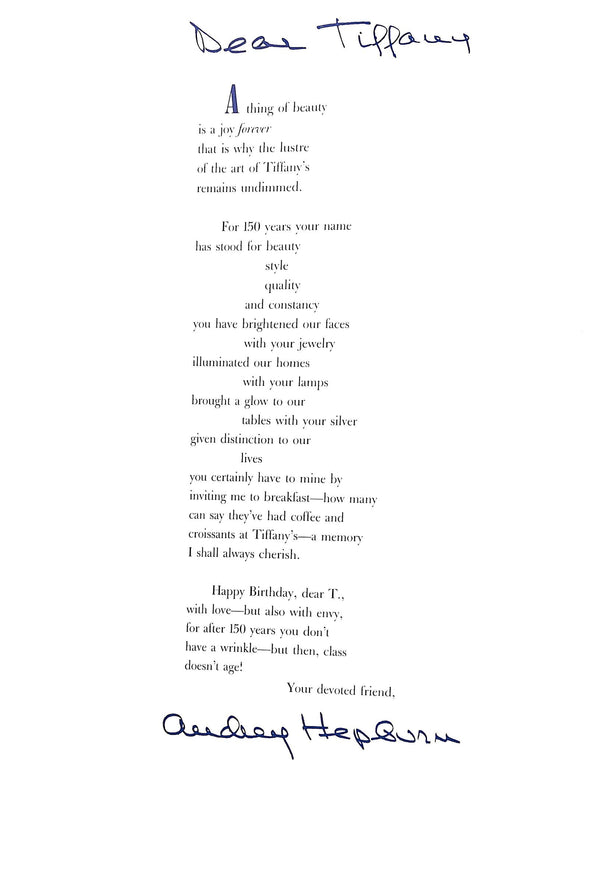 Dear Tiffany
A thing of beauty
is a joy forever
that is why the lustre
of the art of Tiffany's
remains undimmed.
For 150 years your name
has stood for beauty
style
quality
and constancy
you have brightened our faces
with your jewelry
illuminated our homes
with your lamps
brought a glow to our
tables with your silver
given distinction to our
lives
you certainly have to mine by
inviting me to breakfast—how many
can say they've had coffee and
croissants at Tiffany's—a memory
I shall always cherish.
Happy Birthday, dear T.,
with love—but also with envy,
for after 150 years you don't
have a wrinkle—but then, class
doesn't age!
Your devoted friend,
Audrey Hepburn